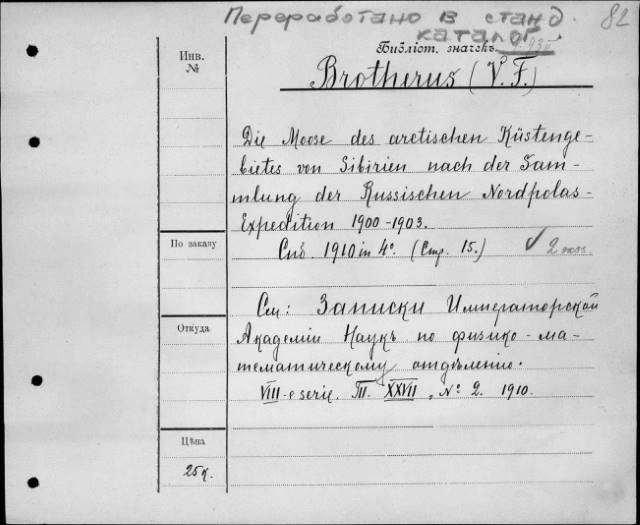 Переработано в станд. 82
каталог
Библіот. значекъ
Инв.
№
Brotherus (V. F.)
Die Moose des arctischen Küstenge-
bietes von Sibirien nach der Sam-
mlung der Russischen Nordpolas-
Expedition 1900-1903.
По заказу
Спб. 1910 in 4º. (Стр. 15.) ✓ 2 экз.
См: Записки Императорской
Откуда
Академіи Наукъ по физико-ма-
тематическому отдѣленію.
VIII-e serie. Т. XXVII, № 2. 1910.
Цѣна
25 к.